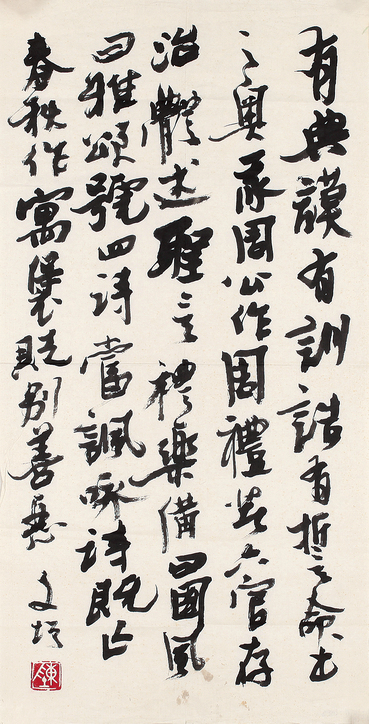 有典謨有訓誥有誓命書
之奧我周公作周禮著六官存
治體述聖言禮樂備曰國風
曰雅頌號四詩當諷咏詩既亡
春秋作寓褒貶別善惡
文